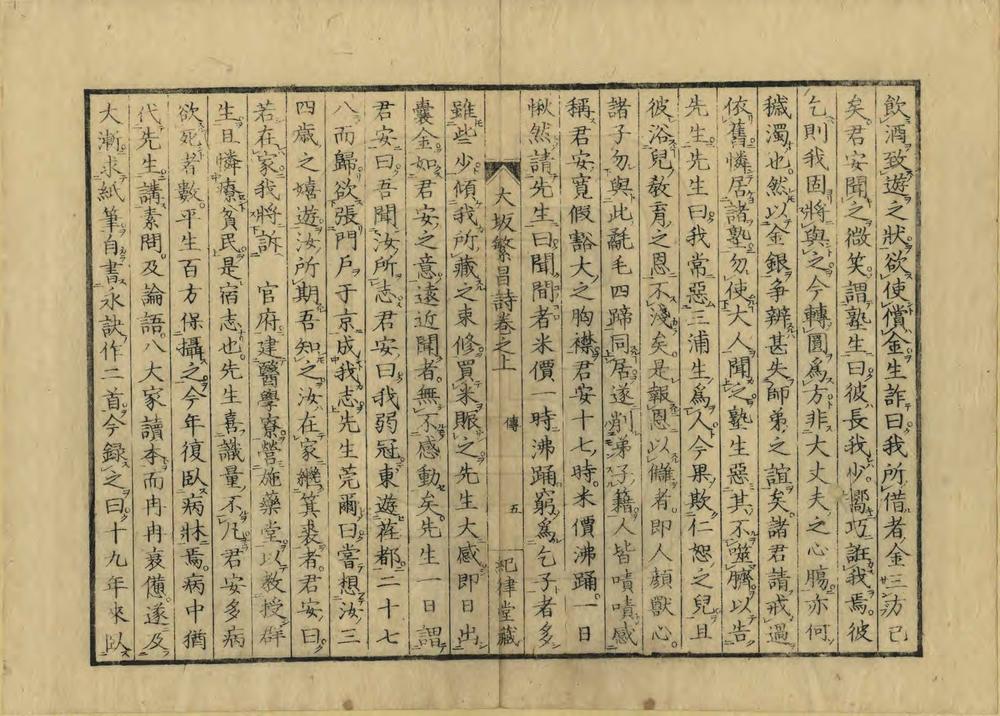 飲酒致遊之狀欲使償金生詐曰我所借者金三方已
矣君安聞之微笑謂塾生曰彼長我少嚮巧誑我焉彼
乞則我固將與之今轉圜爲方非大丈夫之心膓亦何
穢濁也然以金銀争辨甚失師弟之誼矣諸君請戒過
依舊憐居諸塾勿使大人聞之塾生惡其不噬臍以告
先生先生曰我常惡三浦生爲人今果欺仁恕之兒且
彼浴兒敎育之恩不淺矣是報恩以讎者即人顔獸心
諸子勿與此毳毛四蹄同居遂削弟子籍人皆嘖嘖感
稱君安寛假豁大之胸襟君安十七時米價沸踊一日
愀然請先生曰聞間者米價一時沸踊窮爲乞子者多
大坂繁昌詩卷之上
傳
五
紀律堂藏
雖些少傾我所藏之束修買米賑之先生大感即日出
囊金如君安之意遠近聞者無不感動矣先生一日謂
君安曰吾聞汝所志君安曰我弱冠東遊在都二十七
八而歸欲張門戶于京成我志先生莞爾曰當想汝三
四歲之嬉遊汝所期吾知之汝在家繼箕裘者君安曰
若在家我將訴 官府建醫學寮營施藥堂以敎授群
生且憐療貧民是宿志也先生喜識量不凡君安多病
欲死者數平生百方保攝之今年復臥病牀焉病中猶
代先生講素問及論語八大家讀本而冉冉衰憊遂及
大漸求紙筆自書永訣作二首今録之曰十九年來臥